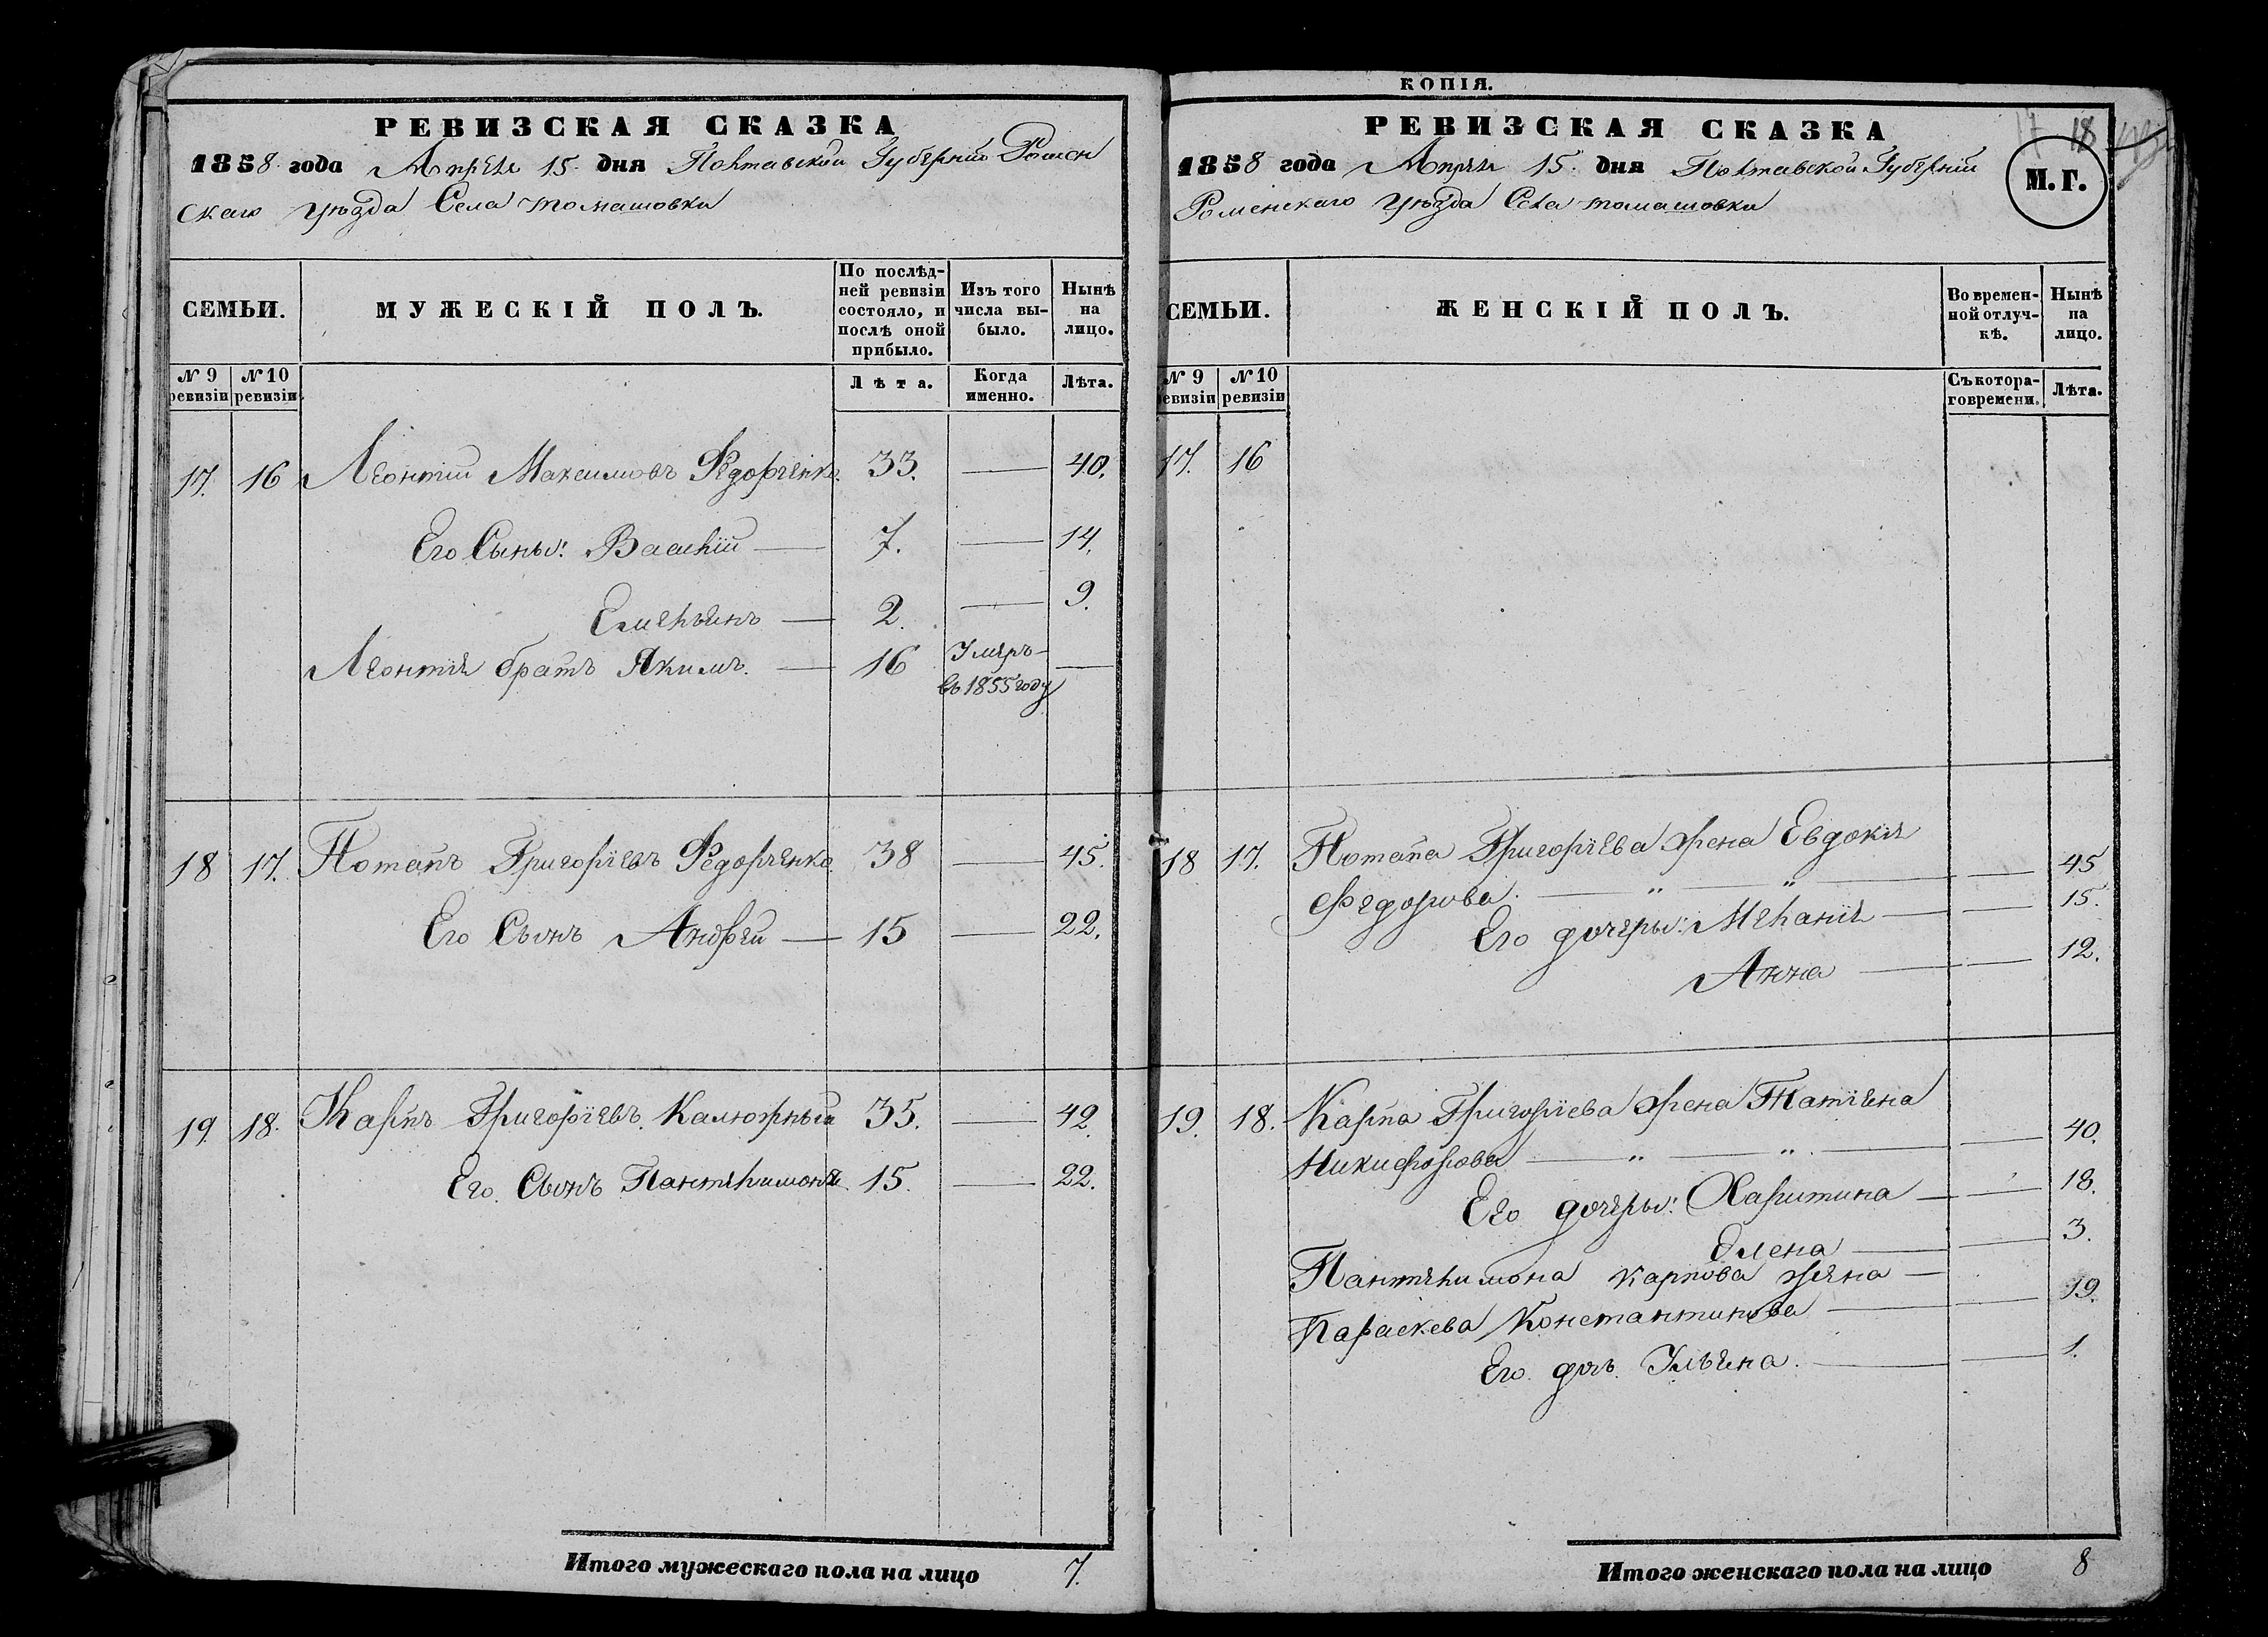 РЕВИЗСКАЯ СКАЗКА
1858 года Апреля 15 дня Полтавской Губерніи Ромен
скаго уѣзда Села томашовки
СЕМЬИ.
МУЖЕСКІЙ ПОЛЪ.
По послѣд-
ней ревизіи
состояло, и
послѣ оной
прибыло.
Изъ того
числа вы-
было.
Нынѣ
на
лицо.
№ 9
ревизіи
№ 10
ревизіи
Лѣта.
Когда
именно.
Лѣта.
17. 16 Леонтій Максимовъ Федорченко. 33. — 40.
Его Сыны: Василій — 7. — 14.
Емельянъ — 2. — 9.
Леонтія братъ Якимъ. — 16 Умеръ —
въ 1855 году
18 17. Потапъ Григоріевъ Федорченко. 38 — 45.
Его Сынъ Андрей — 15 — 22.
19. 18. Карпъ Григоріевъ Калюжный 35. — 42.
Его Сынъ Пантелимонъ 15. — 22.
Итого мужескаго пола на лицо 7.
КОПІЯ.
РЕВИЗСКАЯ СКАЗКА
18
1858 года Апреля 15. дня Полтавской Губерніи
М. Г.
Роменскаго уѣзда Села томашовки
СЕМЬИ.
ЖЕНСКІЙ ПОЛЪ.
Во времен-
ной отлуч-
кѣ.
Нынѣ
на
лицо.
№ 9
ревизіи
№ 10
ревизіи
Съ котора-
го времени.
Лѣта.
17. 16
18 17. Потапа Григоріева жена Евдокія
Федорова. — " — " — — 45
Его дочеры: Меланія — — 15.
Анна — — 12.
19. 18. Карпа Григоріева жена Татіяна
Никифорова — " — " — — 40.
Его дочеры: Харитина — — 18.
Олена — — 3.
Пантелимона Карпова жена —
Параскева Константинова — — 19.
Его дочь Ульяна. — — 1.
Итого женскаго пола на лицо 8